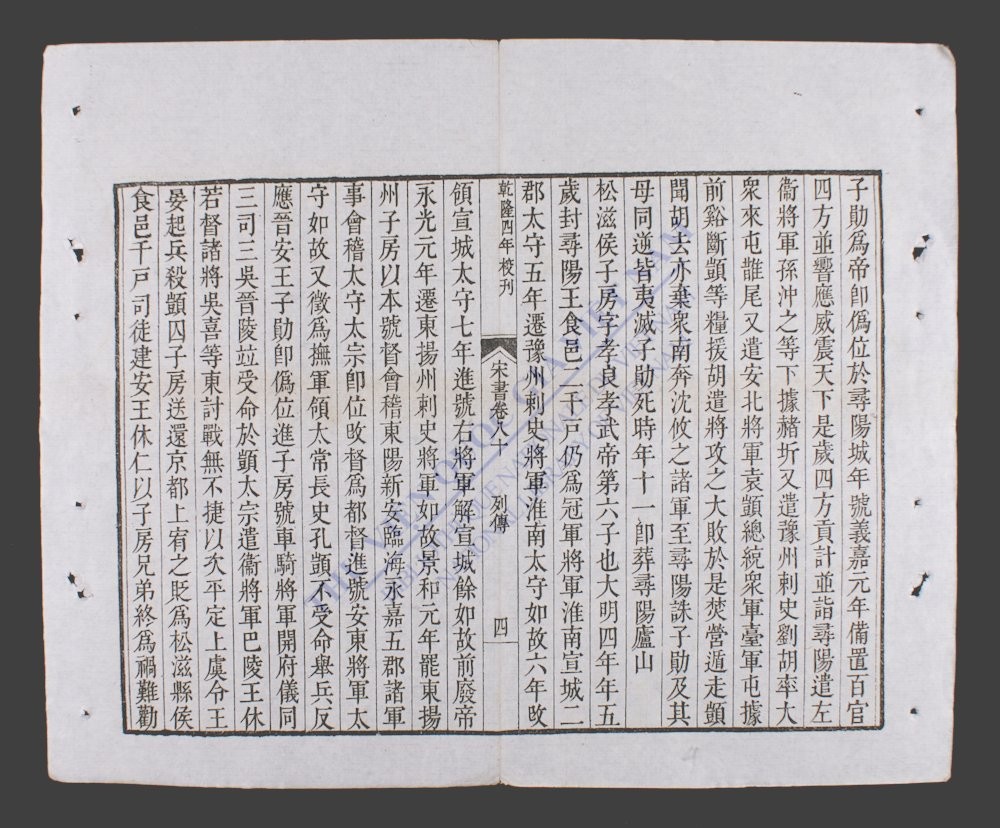 子勛爲帝卽僞位於尋陽城年號義嘉元年備置百官
四方並響應威震天下是歲四方貢計並詣尋陽遣左
衞將軍孫沖之等下據赭圻又遣豫州刺史劉胡率大
衆來屯鵲尾又遣安北將軍袁顗總統衆軍臺軍屯據
前谿斷顗等糧援胡遣將攻之大敗於是焚營遁走顗
聞胡去亦棄衆南奔沈攸之諸軍至尋陽誅子勛及其
母同逆皆夷滅子勛死時年十一卽葬尋陽廬山
松滋侯子房字孝良孝武帝第六子也大明四年年五
歲封尋陽王食邑二千戸仍爲冠軍將軍淮南宣城二
郡太守五年遷豫州刺史將軍淮南太守如故六年改
乾隆四年校刊
宋書卷八十
列傳
四
領宣城太守七年進號右將軍解宣城餘如故前廢帝
永光元年遷東揚州刺史將軍如故景和元年罷東揚
州子房以本號督會稽東陽新安臨海永嘉五郡諸軍
事會稽太守太宗卽位改督爲都督進號安東將軍太
守如故又徵爲撫軍領太常長史孔覬不受命舉兵反
應晉安王子勛卽僞位進子房號車騎將軍開府儀同
三司三吳晉陵竝受命於顗太宗遣衞將軍巴陵王休
若督諸將吳喜等東討戰無不捷以次平定上虞令王
晏起兵殺顗囚子房送還京都上宥之貶爲松滋縣侯
食邑千戸司徒建安王休仁以子房兄弟終爲禍難勸